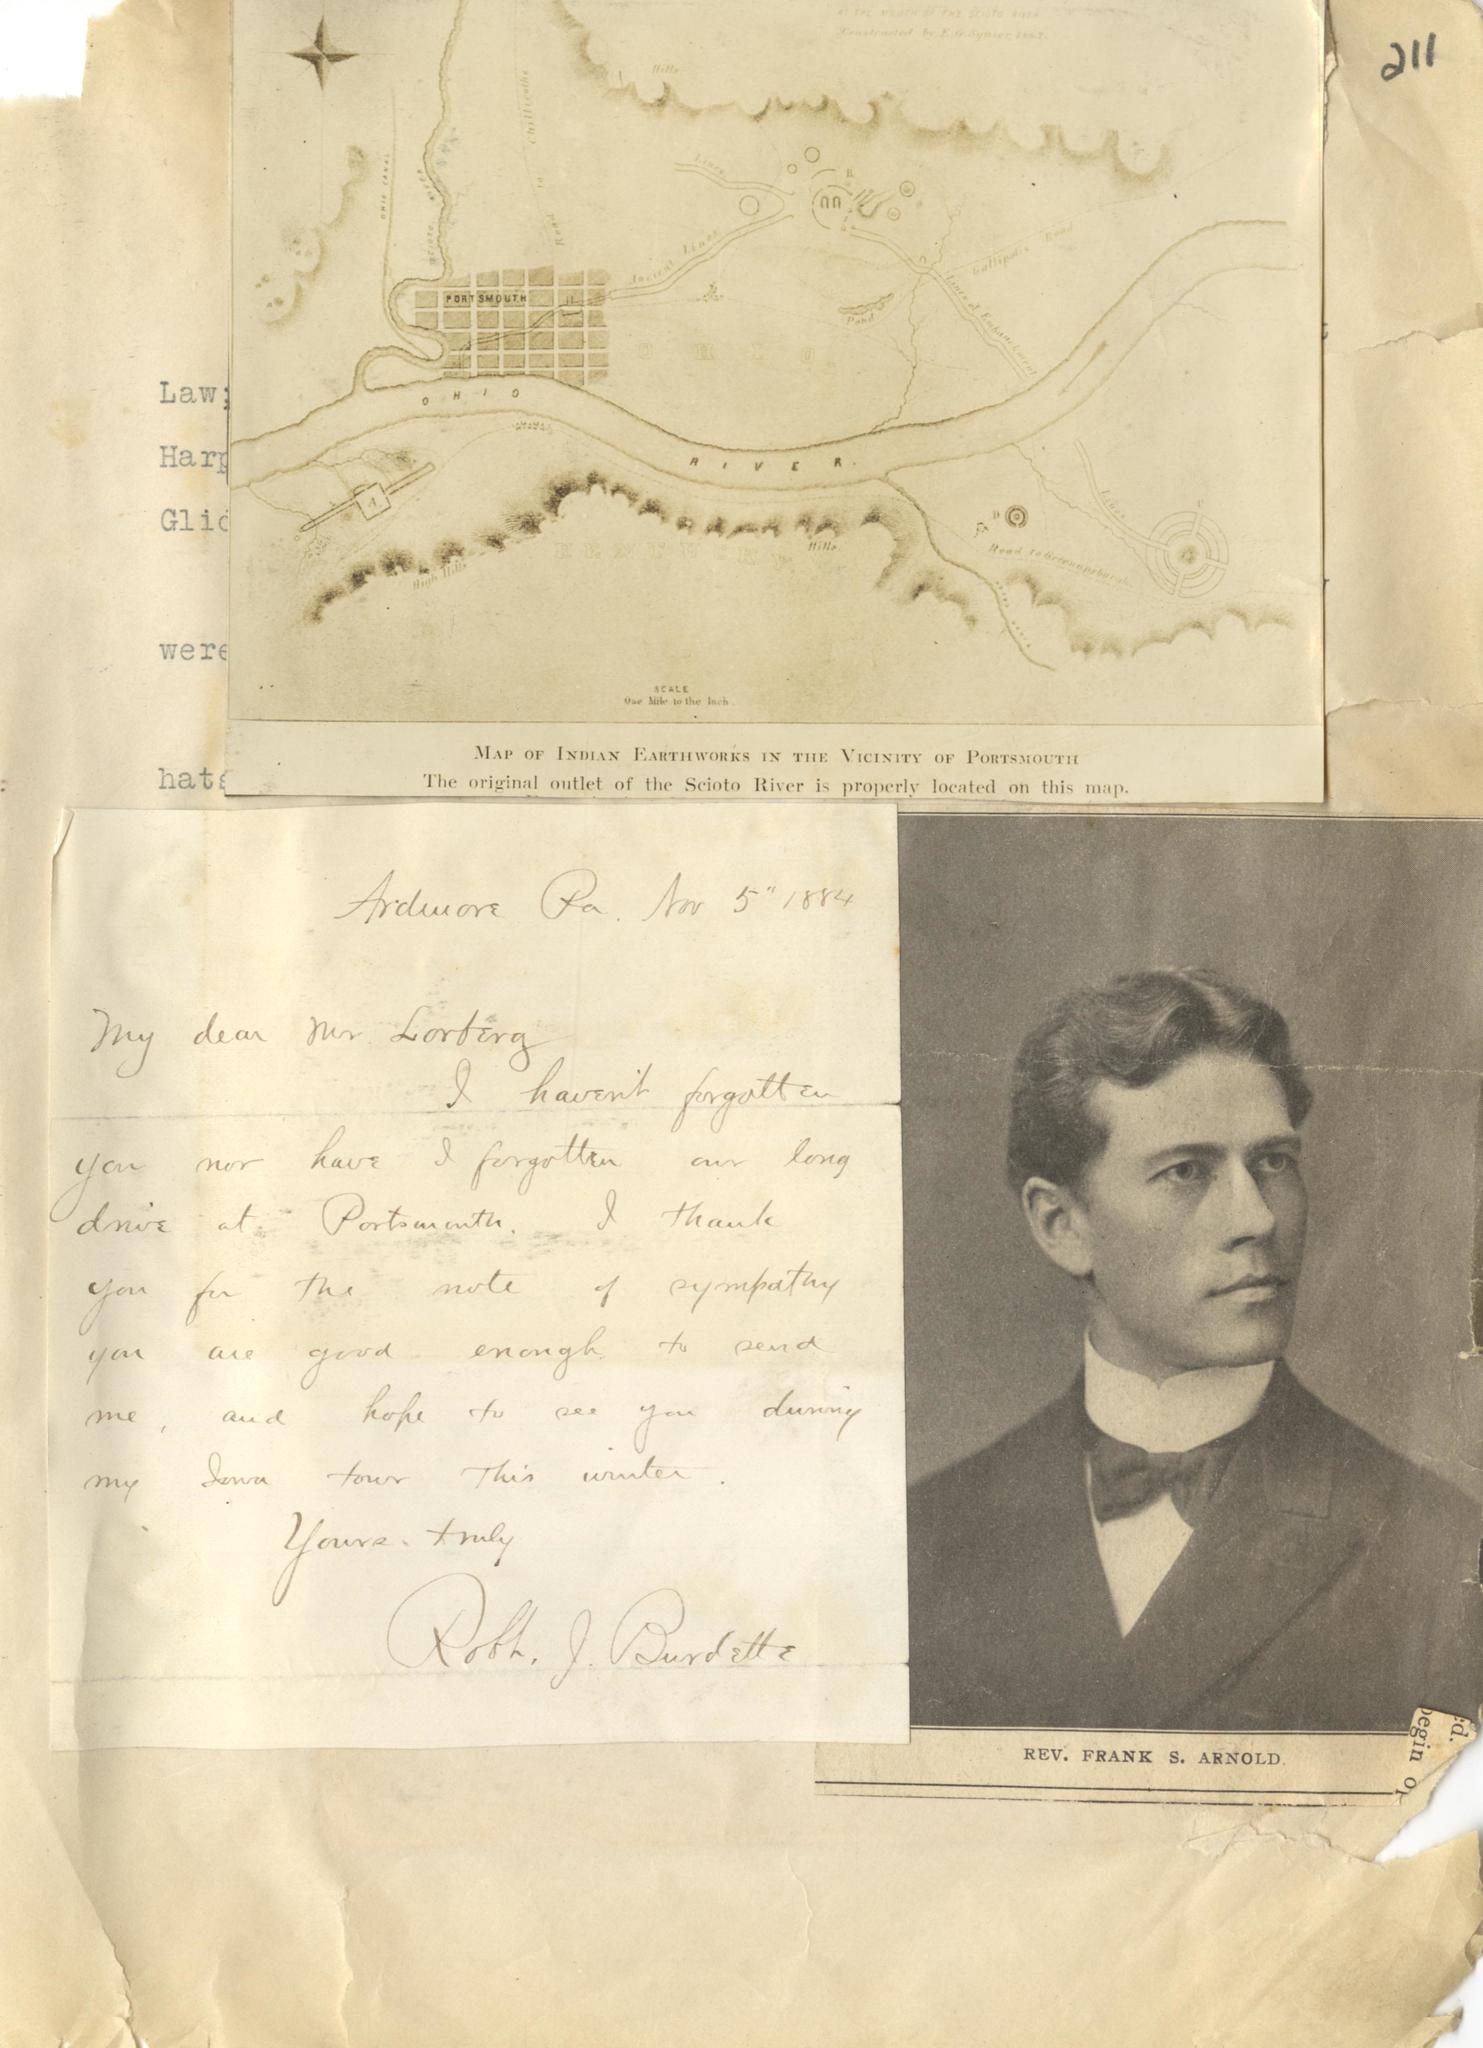 211
AT THE MOUTH OF THE SCIOTO RIVER
Constructed by E. G. Squier, 1847.
Hills
Chillicothe
to
Road
OHIO CANAL
SCIOTO RIVER
Lines
B
Ancient Lines
Gallipolis Road
PORTSMOUTH
Pond
Lines of Embankment
OHIO
OHIO
RIVER.
A
D
Lines
C
KENTUCKY
Hills
High Hills
Road to Greenupsburgh
SCALE
One Mile to the Inch
MAP OF INDIAN EARTHWORKS IN THE VICINITY OF PORTSMOUTH
The original outlet of the Scioto River is properly located on this map.
Law;
Harp
Glid
were
hats
Ardmore Pa. Nov 5" 1884
My dear Mr. Lorberg
I haven't forgotten
you nor have I forgotten our long
drive at Portsmouth. I thank
you for the note of sympathy
you are good enough to send
me, and hope to see you during
my Iowa tour this winter.
Yours truly
Robt. J. Burdette
REV. FRANK S. ARNOLD.
ed.
begin